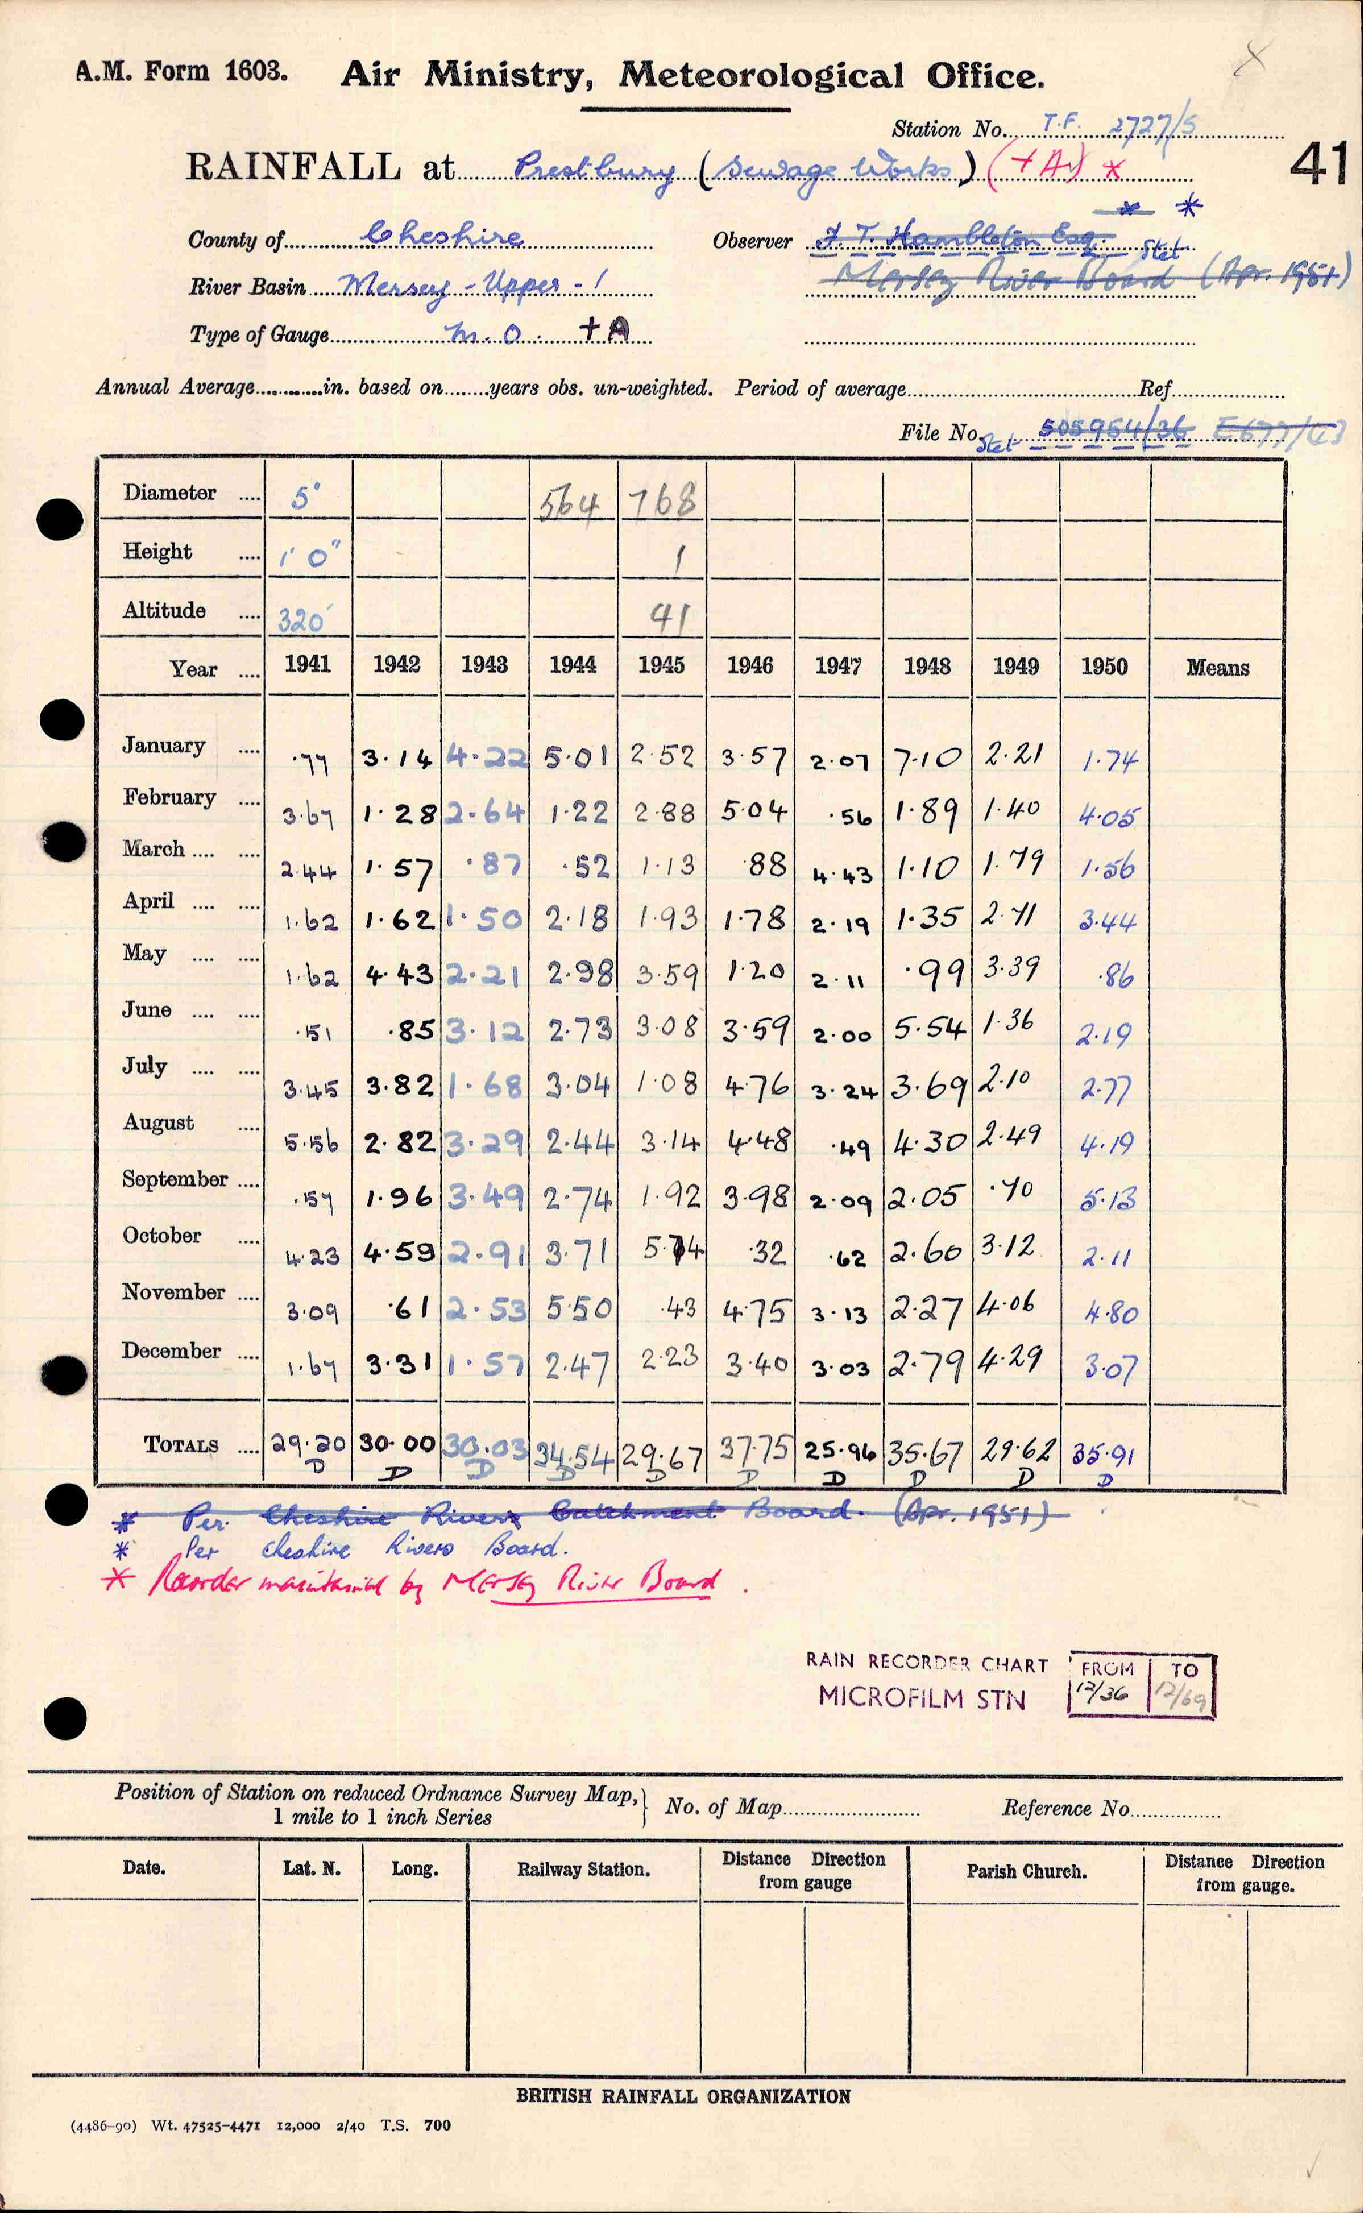 A.M. Form 1603. Air Ministry, Meteorological Office.
Station No. T.F. 2727/5
RAINFALL at Prestbury (Sewage Works) (+A) * 41
* *
County of Cheshire Observer F. T. Hambleton Esq. Stet
River Basin Mersey - Upper - 1 Mersey River Board (Apr. 1951)
Type of Gauge M.O. + A
Annual Average in. based on years obs. un-weighted. Period of average Ref
File No. Stet 505954/36 E677/43
Diameter 5" 564 768
Height 1' 0" 1
Altitude 320' 41
Year 1941 1942 1943 1944 1945 1946 1947 1948 1949 1950 Means
January ·77 3·14 4·22 5·01 2·52 3·57 2·07 7·10 2·21 1·74
February 3·67 1·28 2·64 1·22 2·88 5·04 ·56 1·89 1·40 4·05
March 2·44 1·57 ·87 ·52 1·13 ·88 4·43 1·10 1·79 1·56
April 1·62 1·62 1·50 2·18 1·93 1·78 2·19 1·35 2·71 3·44
May 1·62 4·43 2·21 2·98 3·59 1·20 2·11 ·99 3·39 ·86
June ·51 ·85 3·12 2·73 3·08 3·59 2·00 5·54 1·36 2·19
July 3·45 3·82 1·68 3·04 1·08 4·76 3·24 3·69 2·10 2·77
August 5·56 2·82 3·29 2·44 3·14 4·48 ·49 4·30 2·49 4·19
September ·57 1·96 3·49 2·74 1·92 3·98 2·09 2·05 ·70 5·13
October 4·23 4·59 2·91 3·71 5·74 ·32 ·62 2·60 3·12 2·11
November 3·09 ·61 2·53 5·50 ·43 4·75 3·13 2·27 4·06 4·80
December 1·67 3·31 1·57 2·47 2·23 3·40 3·03 2·79 4·29 3·07
TOTALS 29·20 30·00 30·03 34·54 29·67 37·75 25·96 35·67 29·62 35·91
D D D D D D D D D D
* Per Cheshire Rivers Catchment Board. (Apr. 1951)
* Per Cheshire Rivers Board.
* Recorder maintained by Mersey River Board.
RAIN RECORDER CHART FROM TO
MICROFILM STN 12/36 12/69
Position of Station on reduced Ordnance Survey Map, No. of Map Reference No.
1 mile to 1 inch Series
Date. Lat. N. Long. Railway Station. Distance Direction from gauge Parish Church. Distance Direction from gauge.
BRITISH RAINFALL ORGANIZATION
(4486-90) Wt. 47525-4471 12,000 2/40 T.S. 700